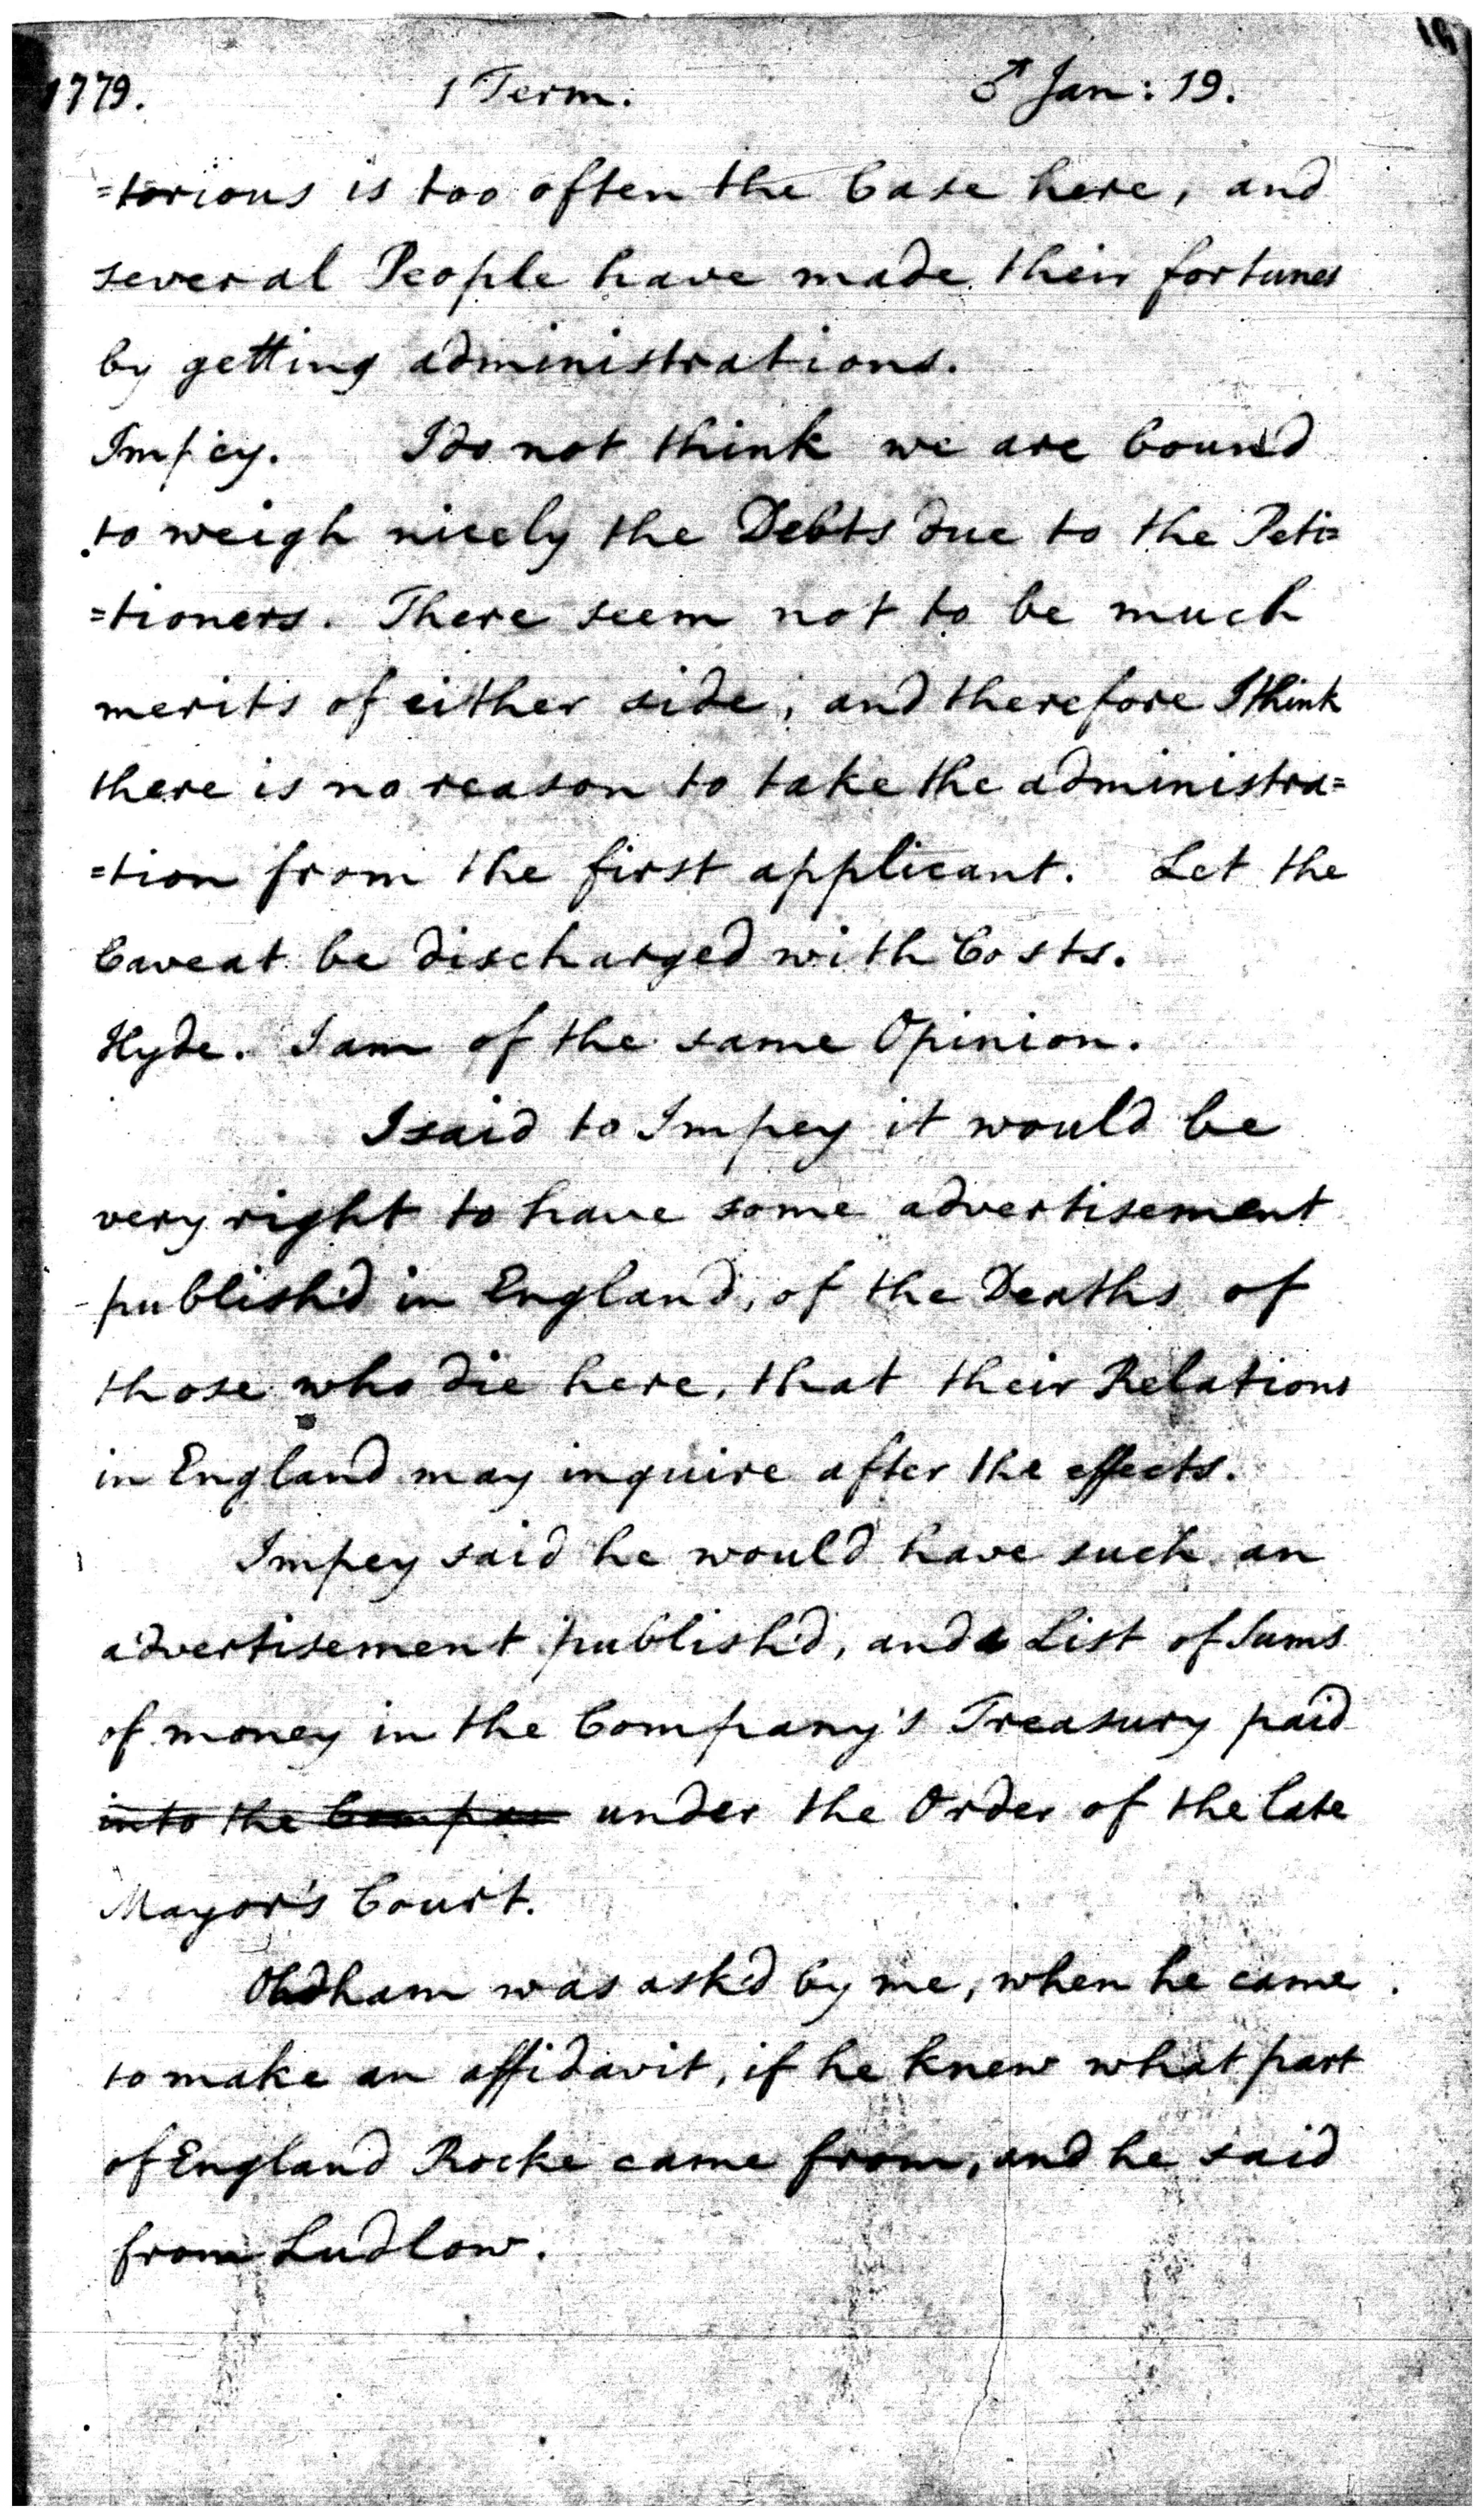 1779. 1 Term. ♂ Jan: 19.
=torious is too often the Case here, and
several People have made their fortunes
by getting administrations.
Impey. I do not think we are bound
to weigh nicely the Debts due to the Peti=
=tioners. There seem not to be much
merits of either side, and therefore I think
there is no reason to take the administra=
=tion from the first applicant. Let the
Caveat be discharged with Costs.
Hyde. I am of the same Opinion.
I said to Impey it would be
very right to have some advertisement
publish'd in England, of the Deaths of
those who die here, that their Relations
in England may inquire after the effects.
Impey said he would have such an
advertisement publish'd, and a List of Sums
of money in the Company's Treasury paid
into the Compan under the Order of the late
Mayor's Court.
Oldham was ask'd by me, when he came
to make an affidavit, if he knew what part
of England Rocke came from, and he said
from Ludlow.